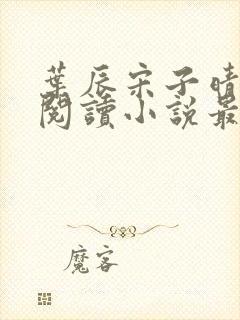 葉辰宋子晴
閱讀小說最
魔客